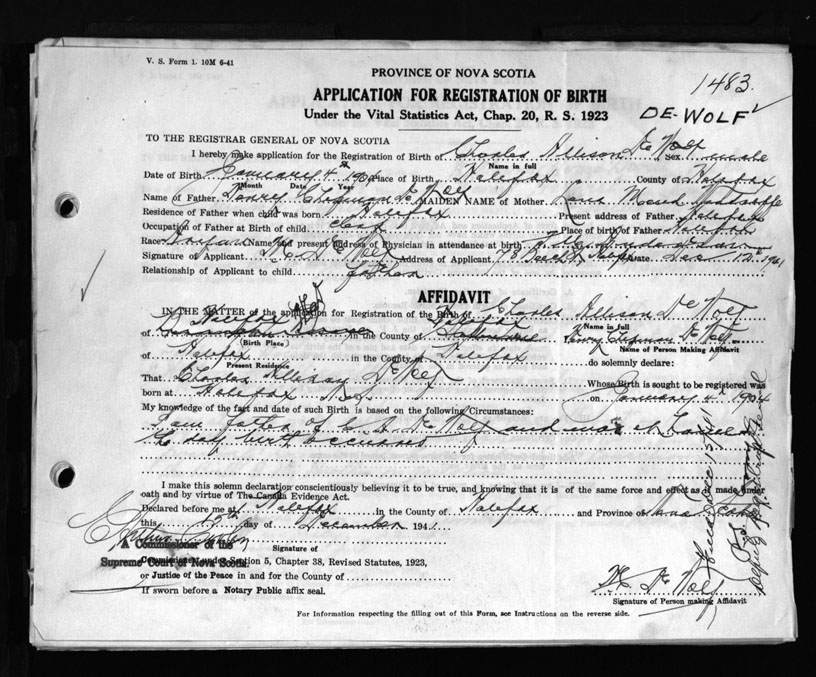 V. S. Form 1. 10M 6-41
1483
PROVINCE OF NOVA SCOTIA
APPLICATION FOR REGISTRATION OF BIRTH
DE-WOLF
Under the Vital Statistics Act, Chap. 20, R. S. 1923
TO THE REGISTRAR GENERAL OF NOVA SCOTIA
I hereby make application for the Registration of Birth of Charles Allison De Wolf Sex male
Name in full
Date of Birth January 4 1904 Place of Birth Halifax County of Halifax
Month Date Year
Name of Father Henry Chipman De Wolf MAIDEN NAME of Mother Maud
Residence of Father when child was born Halifax Present address of Father Halifax
Occupation of Father at Birth of child Clerk Place of birth of Father Halifax
Race Name and present address of Physician in attendance at birth
Signature of Applicant H C De Wolf Address of Applicant 78 Beech St Halifax Date Dec 12 1941
Relationship of Applicant to child father
AFFIDAVIT
IN THE MATTER of the application for Registration of the Birth of Charles Allison De Wolf
Name in full
of Halifax in the County of Halifax Henry Chipman De Wolf
(Birth Place) Name of Person Making Affidavit
of Halifax in the County of Halifax do solemnly declare:
Present Residence
That Charles Allison De Wolf Whose Birth is sought to be registered was
born at Halifax N.S. on January 4 1904
My knowledge of the fact and date of such Birth is based on the following Circumstances:
I am Father of C A De Wolf and was at home
day birth occurred
I make this solemn declaration conscientiously believing it to be true, and knowing that it is of the same force and effect as if made under
oath and by virtue of The Canada Evidence Act.
Declared before me at Halifax in the County of Halifax and Province of Nova Scotia
this 15th day of December 1941
A Commissioner of the
Supreme Court of Nova Scotia
Signature of
Commissioner under Section 5, Chapter 38, Revised Statutes, 1923,
or Justice of the Peace in and for the County of
If sworn before a Notary Public affix seal.
H C De Wolf
Signature of Person making Affidavit
For Information respecting the filling out of this Form, see Instructions on the reverse side.